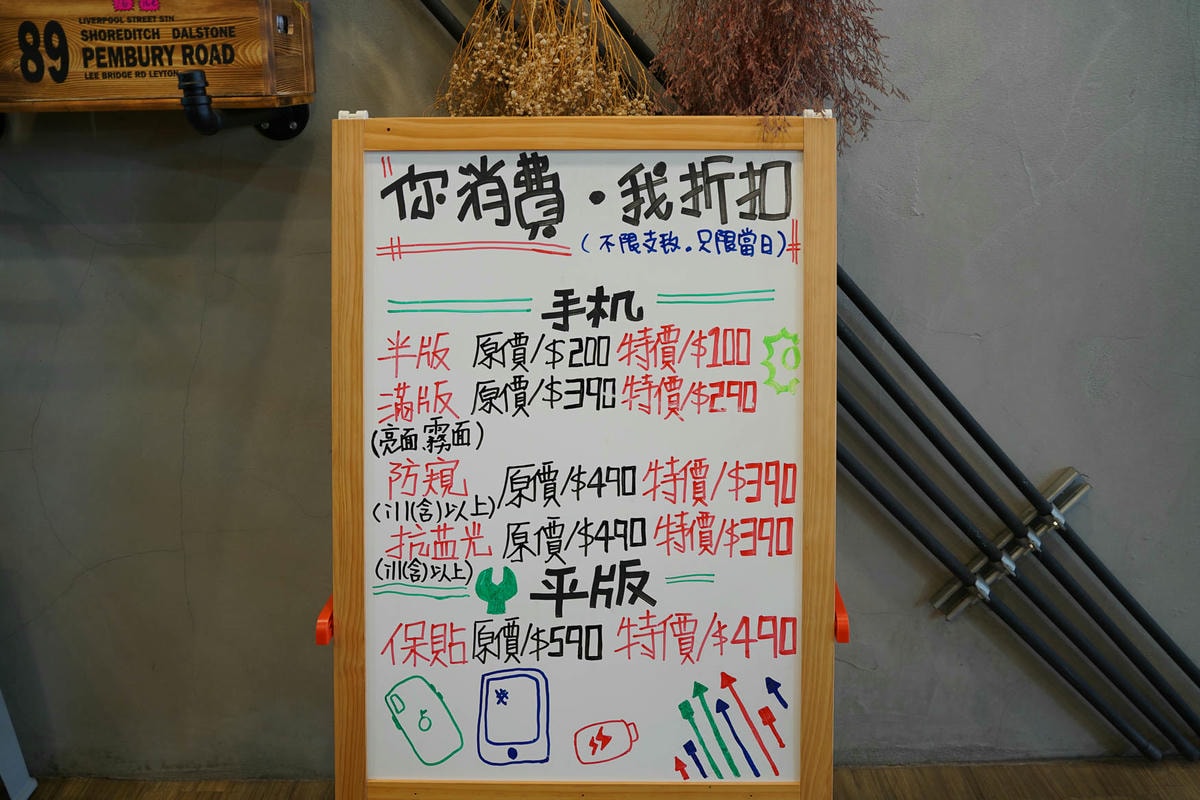 LIVERPOOL STREET STN
89
SHOREDITCH DALSTONE
PEMBURY ROAD
LEE BRIDGE RD LEYTON
"你消費·我折扣"
(不限支数。只限當日)
手机
半版 原價/$200 特價/$100
滿版 原價/$390 特價/$290
(亮面.霧面)
防窺 原價/$490 特價/$390
(i11(含)以上)
抗蓝光 原價/$490 特價/$390
(i11(含)以上)
平版
保貼 原價/$590 特價/$490